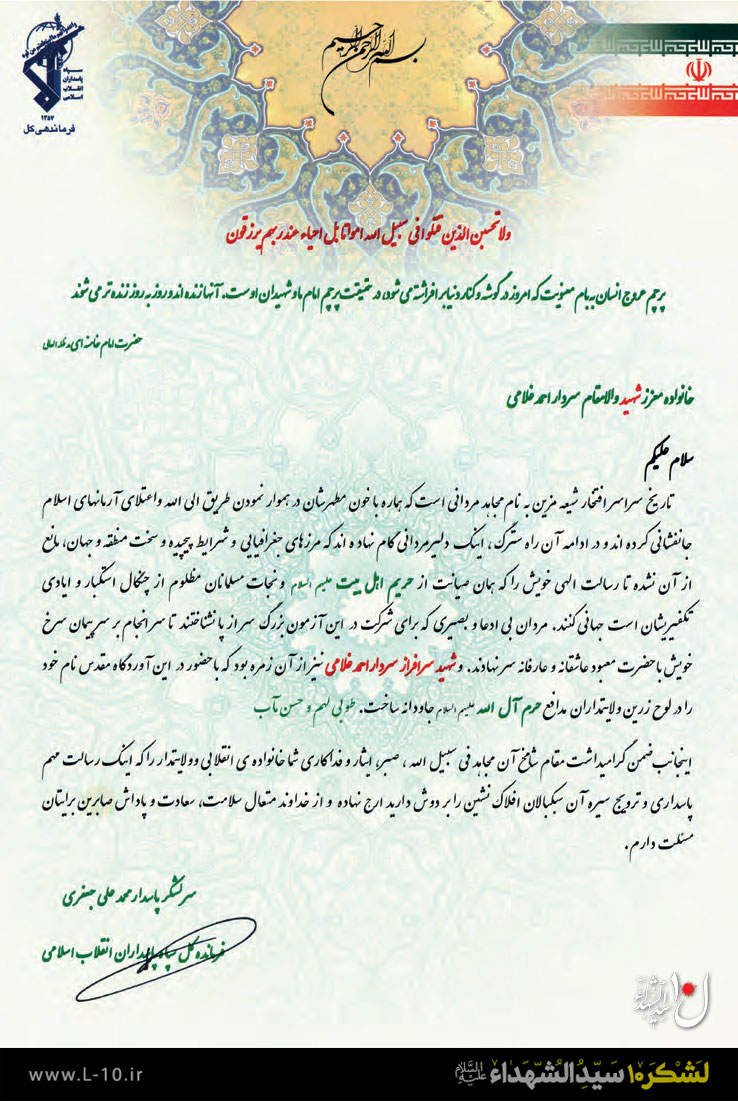 بسم الله الرحمن الرحیم
سپاه
پاسداران
انقلاب
اسلامی
۱۳۵۷
فرماندهی کل
ولاتحسبن الذین قتلوا فی سبیل الله امواتا بل احیاء عند ربهم یرزقون
پرچم عروج انسان به بام معنویت که امروز در گوشه و کنار دنیا برافراشته می‌شود، در حقیقت پرچم امام ما و شهیدان اوست. آنها زنده اند و روز به روز زنده تر می شوند
حضرت امام خامنه ای مدظله العالی
خانواده معزز شهید والامقام سردار احمد غلامی
سلام علیکم
تاریخ سراسر افتخار شیعه مزین به نام مجاهد مردانی است که هماره با خون مطهرشان در هموار نمودن طریق الی الله و اعتلای آرمانهای اسلام
جانفشانی کرده اند و در ادامه آن راه سترگ، اینک دلیرمردانی گام نهاده اند که مرزهای جغرافیایی و شرایط پیچیده و سخت منطقه و جهان، مانع
از آن نشده تا رسالت الهی خویش را که همان صیانت از حریم اهل بیت علیهم السلام و نجات مسلمانان مظلوم از چنگال استکبار و ایادی
تکفیریشان است جهانی کنند. مردان بی ادعا و بصیری که برای شرکت در این آزمون بزرگ سر از پا نشناختند تا سرانجام بر سر پیمان سرخ
خویش با حضرت معبود عاشقانه و عارفانه سر نهادند. و شهید سرافراز سردار احمد غلامی نیز از آن زمره بود که با حضور در این آوردگاه مقدس نام خود
را در لوح زرین ولایتداران مدافع حرم آل الله علیهم السلام جاودانه ساخت. طوبی لهم و حسن مآب
اینجانب ضمن گرامیداشت مقام شامخ آن مجاهد فی سبیل الله، صبر، ایثار و فداکاری شما خانواده ی انقلابی و ولایتدار را که اینک رسالت مهم
پاسداری و ترویج سیره آن سبکبالان افلاک نشین را بر دوش دارید ارج نهاده و از خداوند متعال سلامت، سعادت و پاداش صابرین برایتان
مسئلت دارم.
سرلشکر پاسدار محمد علی جعفری
فرمانده کل سپاه پاسداران انقلاب اسلامی
لشکر ۱۰ سیدالشهداء علیه السلام
www.L-10.ir